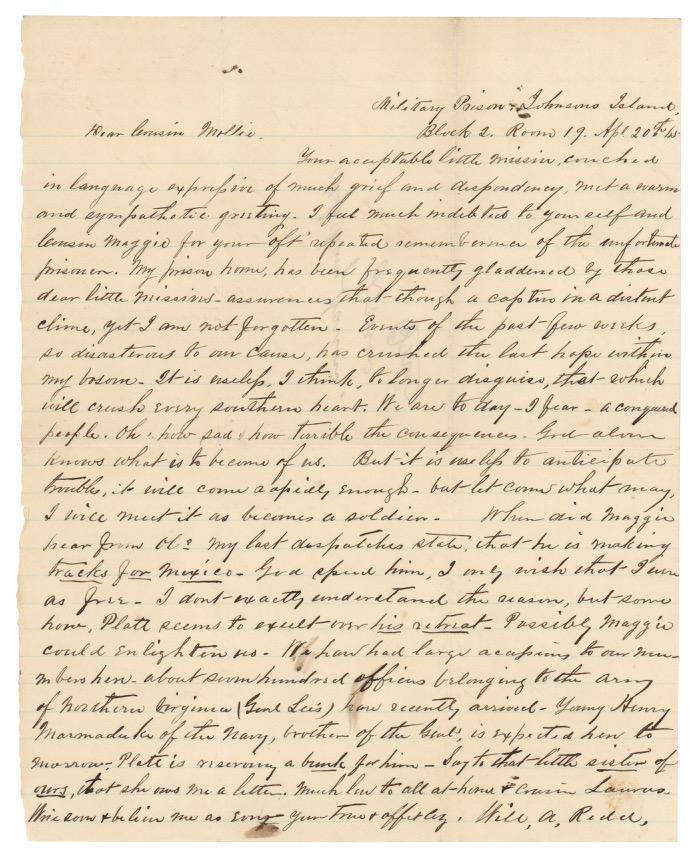 Military Prison, Johnsons Island,
Dear Cousin Mollie. Block 2. Room 19. Apl 20th 65
Your acceptable little missive, couched
in language expressive of much grief and despondency, met a warm
and sympathetic greeting. I feel much indebted to yourself and
Cousin Maggie for your oft' repeated rememberence of the unfortunate
prisoner. My prison home, has been frequently gladdened by those
dear little missives - assurences that though a captive in a distent
clime, yet I am not forgotten - Events of the past few weeks,
so disasterous to our Cause, has crushed the last hope within
my bosom - It is useless, I think, to longer disguise, that which
will crush every southern heart. We are to day - I fear - a conquered
people. Oh! how sad & how terrible the consequences. God alone
knows what is to become of us. But it is useless to anticipate
trouble, it will come rapidly enough - but let come what may,
I will meet it as becomes a soldier - When did Maggie
hear from Ol: my last despatches state, that he is making
tracks for Mexico - God speed him, I only wish that I were
as free - I dont exactly understand the reason, but some
how, Platt seems to exult over his retreat - Possibly Maggie
could Enlighten us - We have had large acessions to our nu-
mbers here - about seven hundred officers belonging to the army
of Northern Virginia (Genl Lee's) have recently arrived - Young Henry
Marmaduke of the Navy, brother of the Genl, is expected here to
morrow. Platt is reserving a bunk for him - Say to that little sister of
ours, that she owes me a letter. Much love to all at home & Cousin Laura.
Write soon & believe me as ever your true & affetly. Will, A, Redd,